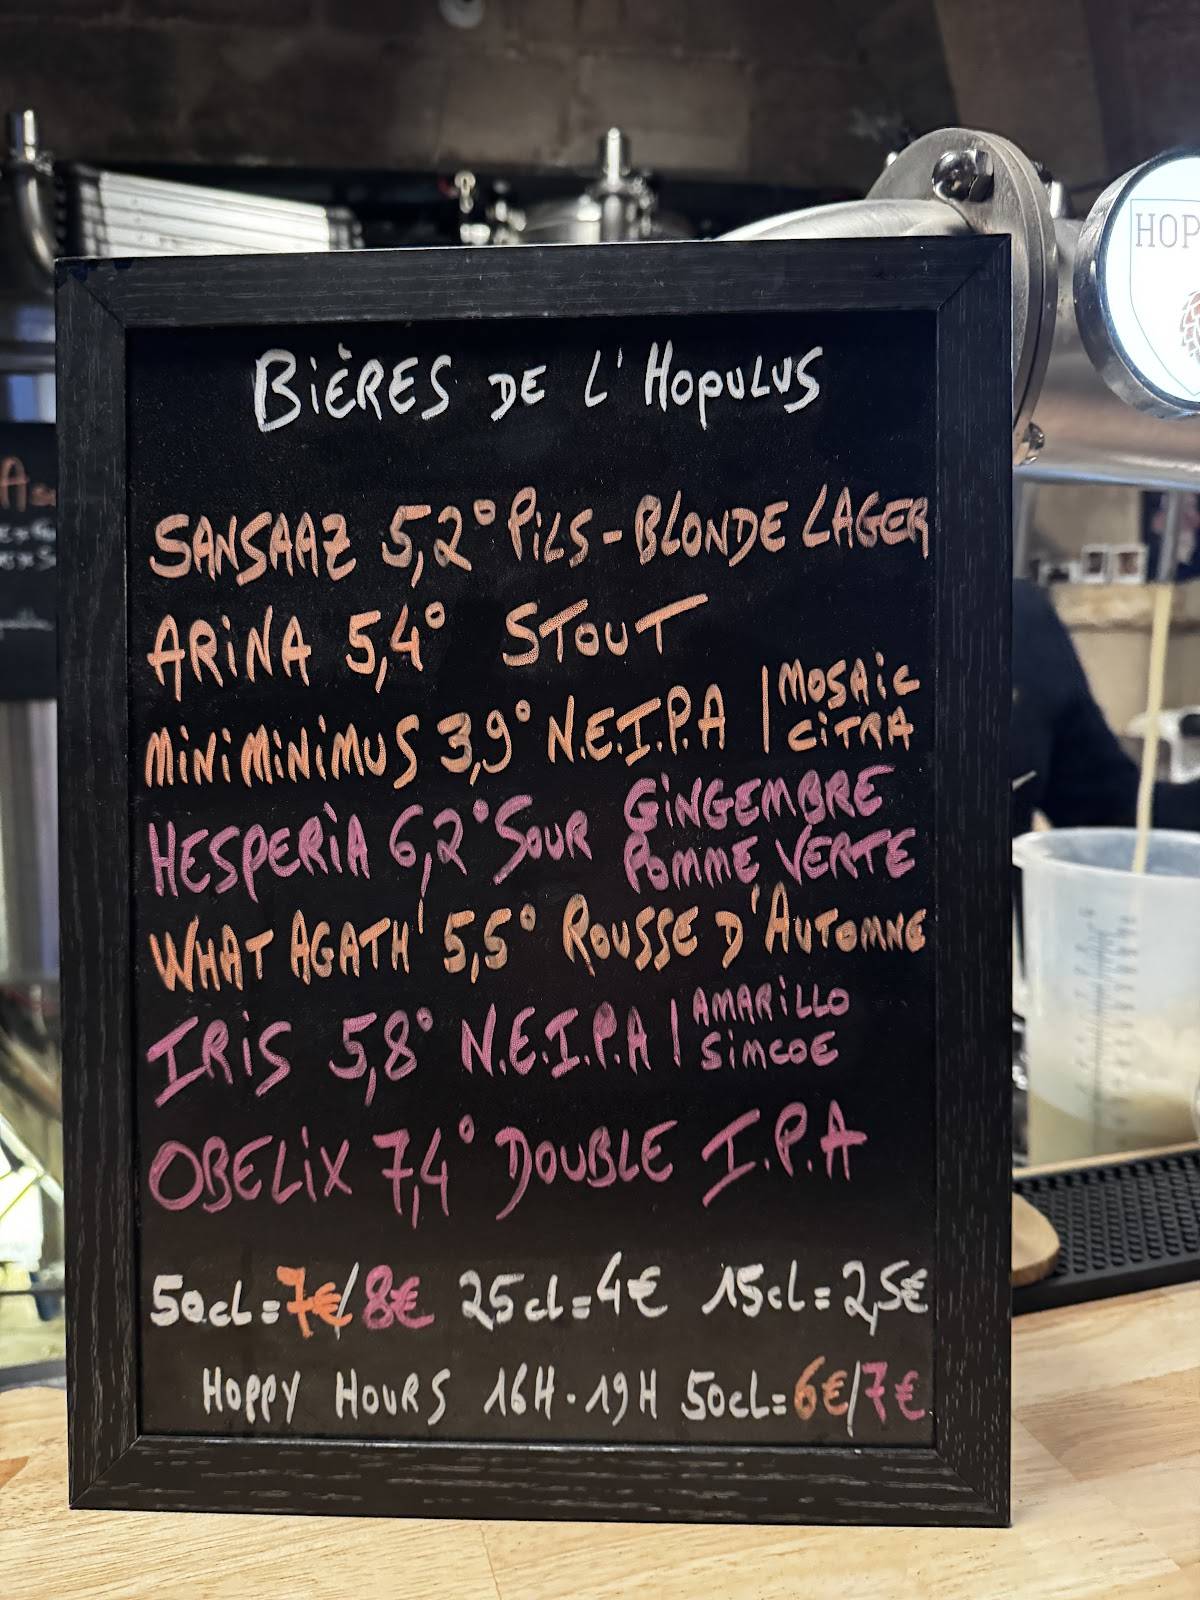 BIÈRES DE L'HOPULUS
SANSAAZ 5,2° PILS - BLONDE LAGER
ARINA 5,4° STOUT
MINIMINIMUS 3,9° N.E.I.P.A | MOSAIC
CITRA
HESPERIA 6,2° SOUR GINGEMBRE
POMME VERTE
WHAT AGATH' 5,5° ROUSSE D'AUTOMNE
IRIS 5,8° N.E.I.P.A | AMARILLO
SIMCOE
OBELIX 7,4° DOUBLE I.P.A
50cl = 7€/8€ 25cl = 4€ 15cl = 2,5€
HOPPY HOURS 16H - 19H 50cl = 6€/7€
HOP